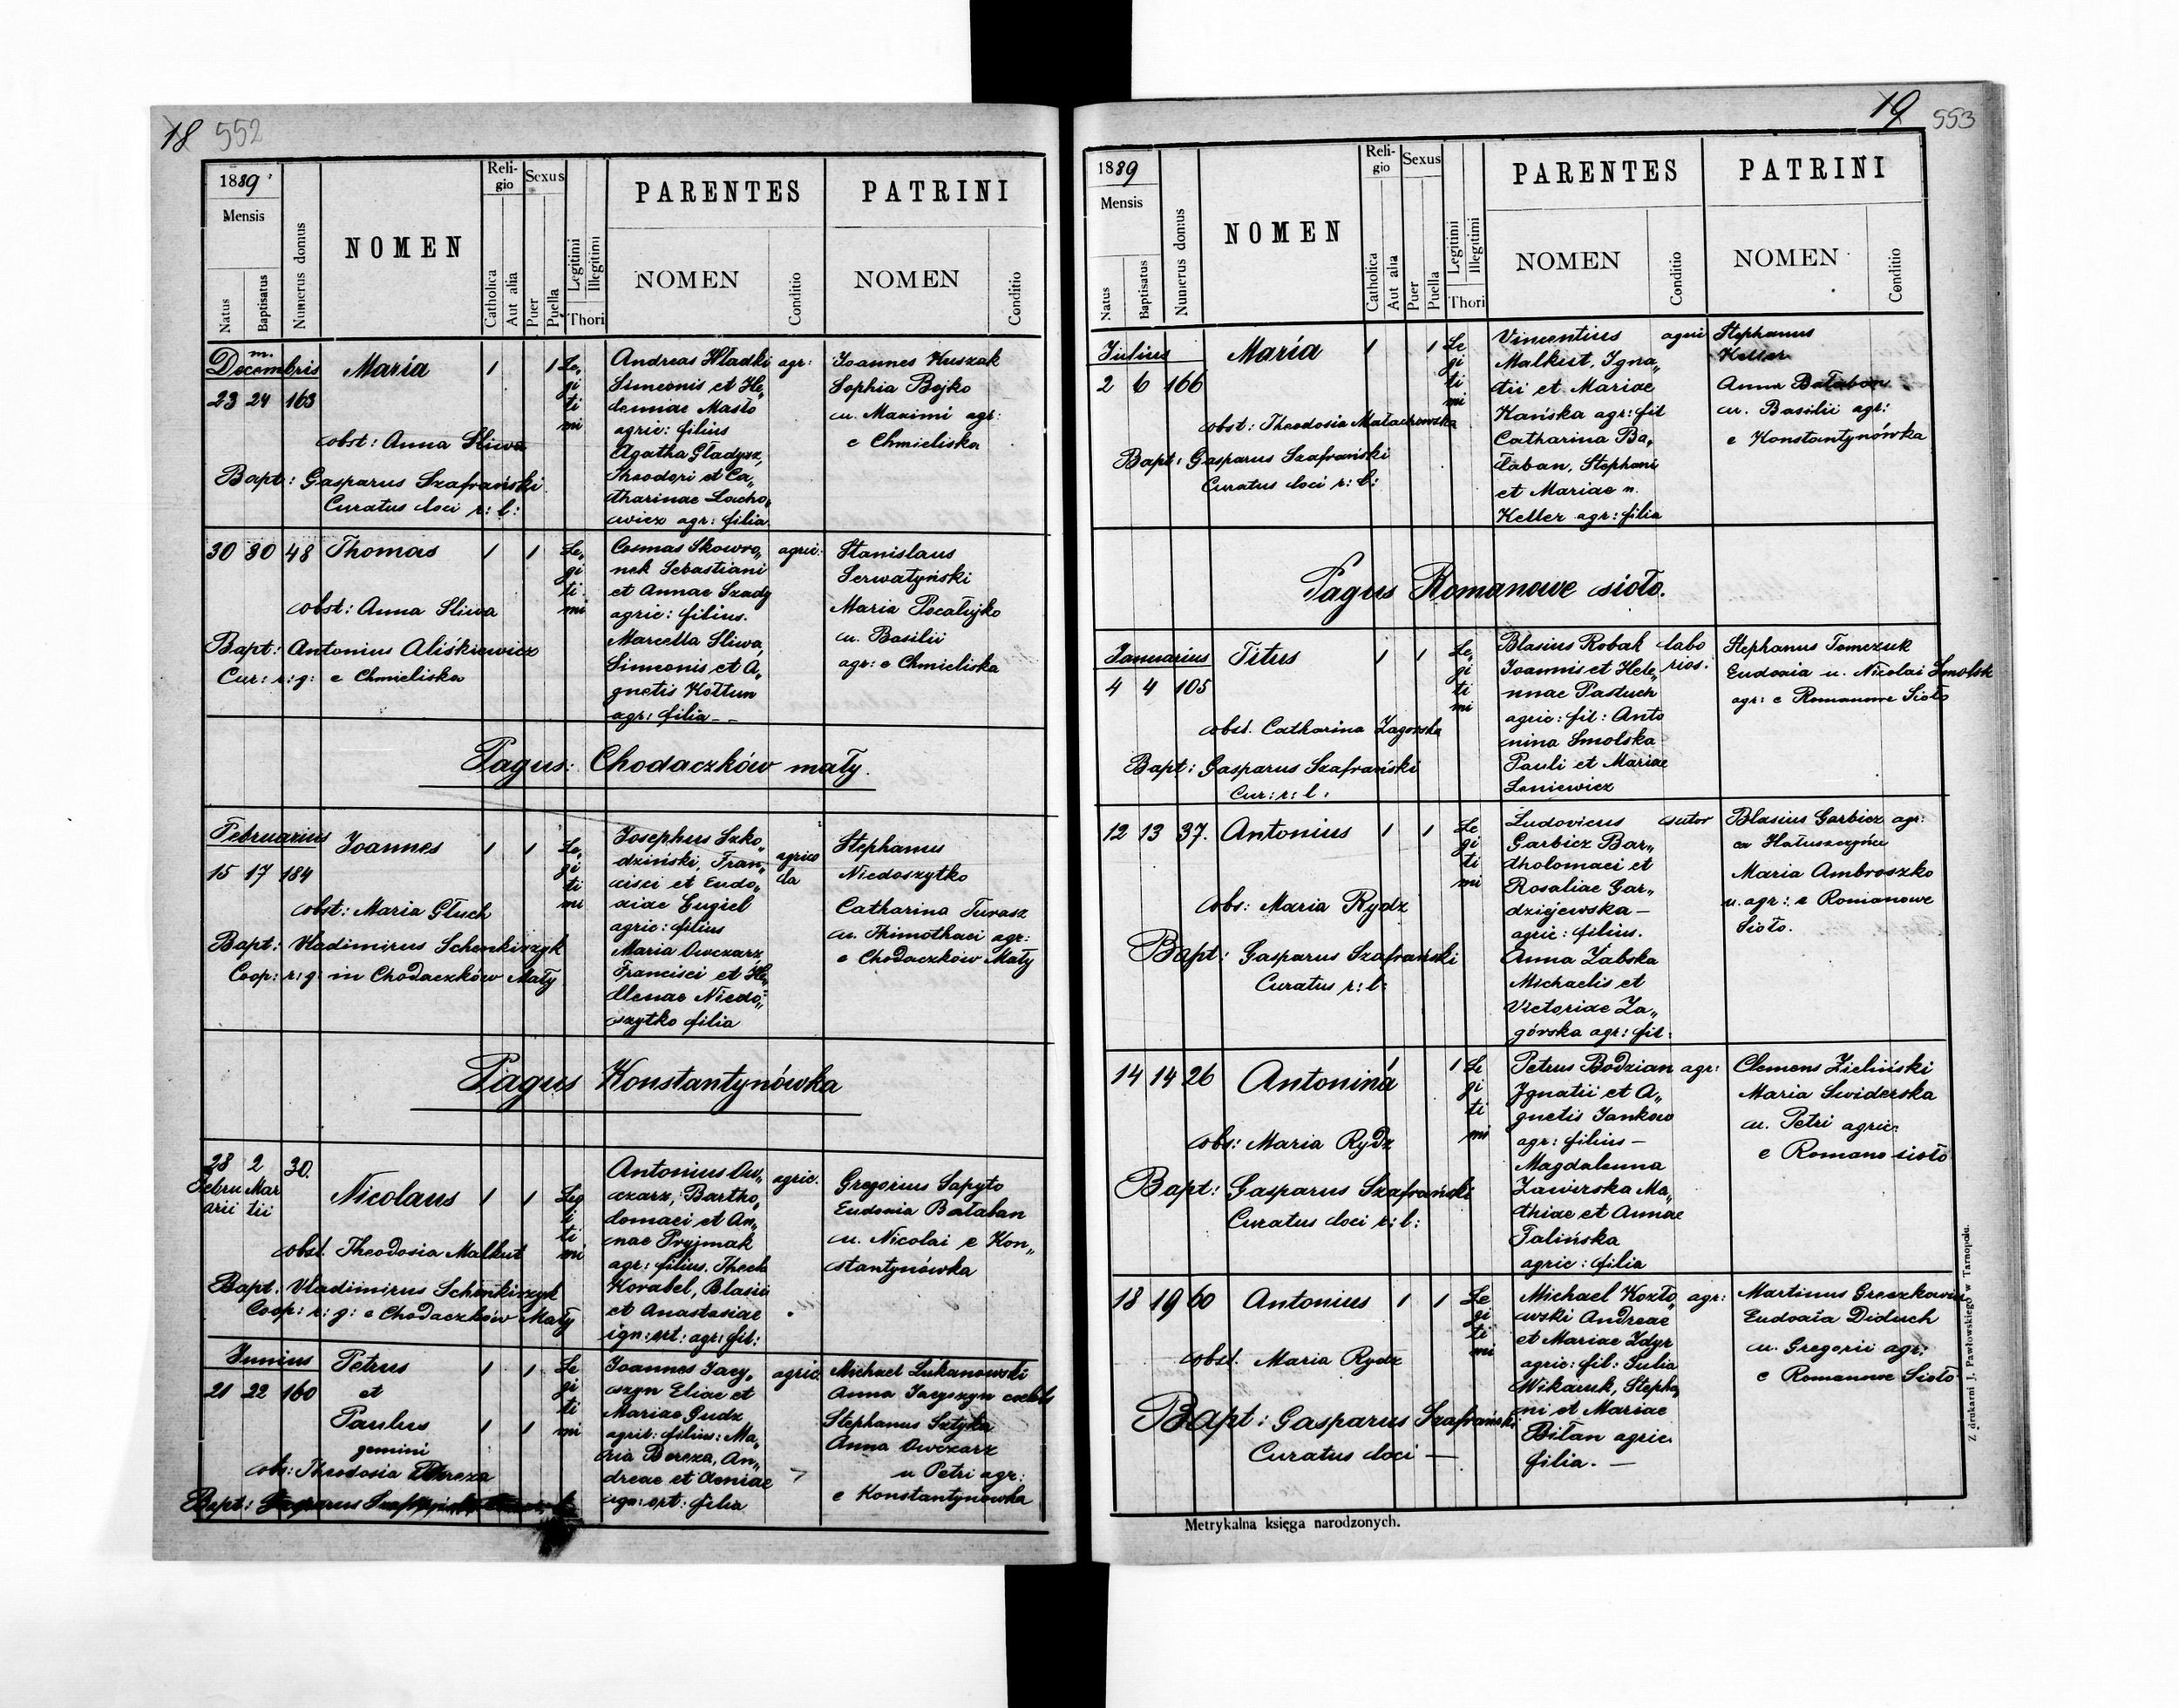 18 552
1889
Mensis
Natus
Baptisatus
Numerus domus
NOMEN
Religio
Catholica
Aut alia
Sexus
Puer
Puella
Legitimi
Illegitimi
Thori
PARENTES
NOMEN
Conditio
PATRINI
NOMEN
Conditio
Decembris
23 24 163
Maria
1 1
Legitimi
obst: Anna Sliwa
Bapt: Gasparus Szafrański
Curatus loci r: l:
Andreas Hładki agr:
Simeonis et He„
lenniae Masło
agric: filius
Agatha Gładysz,
Theodori et Ca„
tharinae Lacho„
wicz agr: filia
Joannes Kuszak
Sophia Bojko
u. Maximi agr:
e Chmieliska
30 30 48 Thomas
1 1
Legitimi
obst: Anna Sliwa
Bapt: Antonius Aliśkiewicz
Cur: r: g: e Chmieliska
Cosmas Skowro„ agric:
nek Sebastiani
et Annae Szady
agric: filius.
Marcella Sliwa,
Simeonis et A„
gnetis Kołtun
agr: filia _ _
Stanislaus
Serwatyński
Maria Pocałujko
u. Basilii
agr: e Chmieliska
Pagus: Chodaczków mały.
Februarius
15 17 184
Joannes
1 1
Legitimi
obst: Maria Głuch
Bapt: Vladimirus Schenkirzyk
Coop: r: g: in Chodaczków Mały
Josephus Szko„
dziński, Fran„ agrico
cisci et Eudo„ la
xiae Gugiel
agric: filius
Maria Owczarz
Francisci et He„
lenae Niedo„
szytko filia
Stephanus
Niedoszytko
Catharina Turasz
u. Thimothaei agr:
e Chodaczków Mały
Pagus Konstantynówka
28 2 30.
Febru Mar
arii tii
Nicolaus
1 1
Legitimi
obst. Theodosia Malkut
Bapt: Vladimirus Schenkirzyk
Coop: r: g: e Chodaczków Mały
Antonius Ow„ agric.
czarz, Bartho„
lomaei et An„
nae Pryjmak
agr: filius. Thecla
Korabel, Blasii
et Anastasiae
ign: ort: agr: fil:
Gregorius Sapyto
Eudoxia Bałaban
u. Nicolai e Kon„
stantynówka
Junius
21 22 160
Petrus
et
Paulus
gemini
1 1
1 1
Legitimi
obs: Theodosia Bereza
Bapt:
Joannes Jacy„ agric.
szyn Eliae et
Mariae Gudz
agric: filius: Ma„
ria Bereza, An„
dreae et Xeniae
ign: ort: filia
Michael Lukanowski
Anna Jacyszyn coelebs
Stephanus Sztyka
Anna Owczarz
u Petri agr:
e Konstantynówka
19 553
1889
Mensis
Natus
Baptisatus
Numerus domus
NOMEN
Religio
Catholica
Aut alia
Sexus
Puer
Puella
Legitimi
Illegitimi
Thori
PARENTES
NOMEN
Conditio
PATRINI
NOMEN
Conditio
Julius
2 6 166
Maria
1 1
Legitimi
obst: Theodosia Małachowska
Bapt: Gasparus Szafrański
Curatus loci r: l:
Vincentius agri
Malkut, Igna„
tii et Mariae
Kańska agr: fil
Catharina Ba„
łaban, Stephani
et Mariae n.
Keller agr: filia
Stephanus
Keller
Anna Bałaban
u. Basilii agr:
e Konstantynówka
Pagus Romanowe sioło.
Januarius
4 4 105
Titus
1 1
Legitimi
obst. Catharina Zagorska
Bapt: Gasparus Szafrański
Cur: r: l:
Blasius Robak labo
Joannis et Hele„ rios:
nnae Pastuch
agric: fil: Anto
nina Smolska
Pauli et Mariae
Leniewicz
Stephanus Tomczuk
Eudoxia u. Nicolai Smolsk
agr: e Romanowe Sioło
12 13 37. Antonius
1 1
Legitimi
obs: Maria Rydz
Bapt: Gasparus Szafrański
Curatus r: l:
Ludovicus sutor
Garbicz Bar„
tholomaei et
Rosaliae Gar„
dziejewska —
agric: filius.
Anna Żabska
Michaelis et
Victoriae Za„
górska agr: fil:
Blasius Garbicz agr:
ex Hałuszczyńce
Maria Ambroszko
u. agr: e Romanowe
Sioło.
14 14 26 Antonina
1 1
Legitimi
obs: Maria Rydz
Bapt: Gasparus Szafrański
Curatus loci r: l:
Petrus Bodzian agr:
Ignatii et A„
gnetis Jankow
agr: filius —
Magdalenna
Zawirska Ma„
thiae et Annae
Falińska
agric: filia
Clemens Zieliński
Maria Swiderska
u. Petri agric:
e Romano sioło
18 19 60 Antonius
1 1
Legitimi
obst. Maria Rydz
Bapt: Gasparus Szafrański
Curatus loci —
Michael Kozło„ agr:
wski Andreae
et Mariae Zdyr
agric: fil: Julia
Wikaruk, Stepha„
ni et Mariae
Biłan agric.
filia. —
Martinus Greszkowicz
Eudoxia Diduch
u. Gregorii agr:
e Romanowe Sioło
Metrykalna księga narodzonych.
Z drukarni J. Pawłowskiego w Tarnopolu.